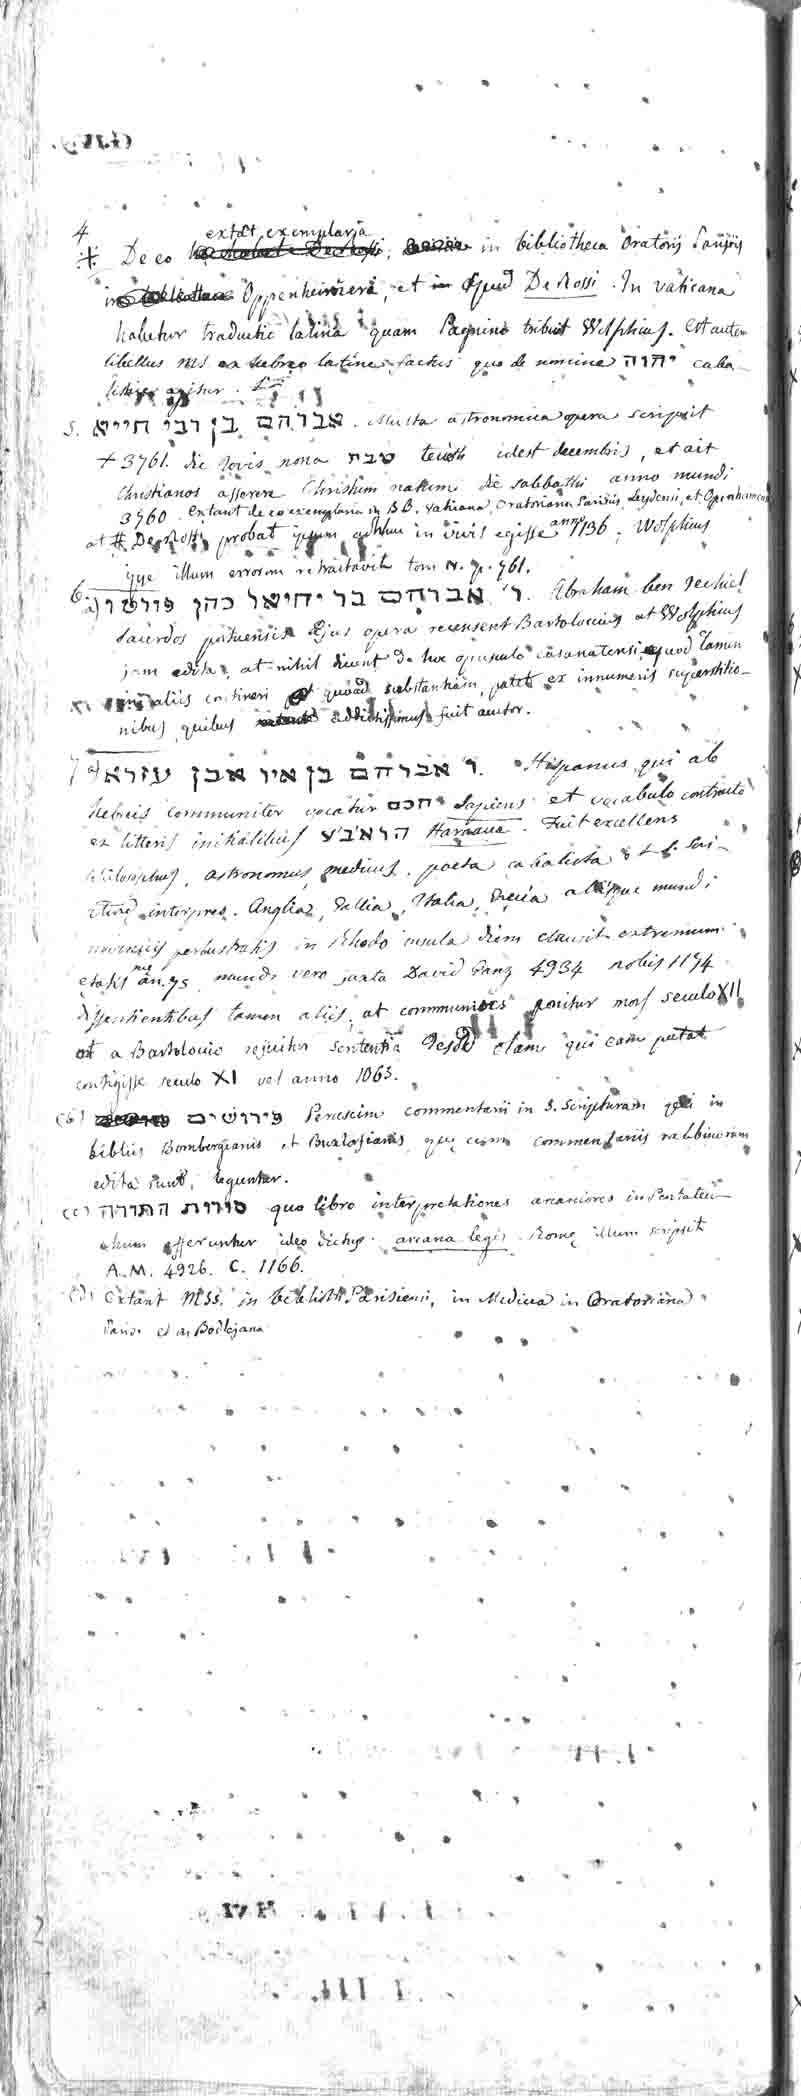 4
extāt exemplaria
De eo in bibliotheca Oratorij Parisijs
Oppenheimera, et apud De Rossi. In Vaticana
habetur traductio latina quam Pagnino tribuit Wolphius. Est autem
libellus MS ex hebreo latine factus quo de nomine יהוה caba-
listice agitur.
5. אברהם בן רבי חייא. Multa astronomica opera scripsit
+ 3761. die Jovis nona טבת teveth idest decembris, et ait
Christianos asserere Christum natum die sabbathi anno mundi
3760. Extant de eo exemplaria in BB. Vaticana, Oratoriana Parisiis, Leydensi, et Oppenheimera
at De Rossi probat ipsum adhuc in vivis egisse anno 1136. Wolphius
ipse illum errorem retractavit tom. p. 761.
6 a) ר' אברהם בר יחיאל כהן פורטו. Abraham ben Jechiel
sacerdos portuensis. Ejus opera recensent Bartoloccius et Wolphius
jam edita, at nihil dicunt de hoc opusculo casanatensi, quod tamen
in aliis contineri quoad substantiam, patet ex innumeris superstitio-
nibus, quibus addictissimus fuit auctor.
7 a) ר' אברהם בן איר אבן עזרא. Hispanus qui ab
hebreis communiter vocatur חכם Sapiens et vocabulo contracto
ex litteris initialibus הראב'ע Haraava. Fuit excellens
philosophus, astronomus, medicus, poeta cabalista et S. Scri-
pture interpres. Anglia, Gallia, Italia, Grecia aliisque mundi
provinciis perlustratis in Rhodo insula diem clausit extremum
etatis sue an. 75 mundi vero juxta David Ganz 4934 nobis 1174
dissentientibus tamen aliis, at communiter ponitur mors seculo XII
et a Bartoloccio rejicitur sententia Gesch. etiam qui eam putat
contigisse seculo XI vel anno 1063.
(b) פירושים Peruscim commentarii in S. Scripturam qui in
bibliis Bombergianis et Buxtorfianis, que cum commentariis rabbinorum
edita sunt, leguntur.
(c) סודות התורה quo libro interpretationes arcaniores in Pentateu-
chum afferuntur ideo dictus arcana legis. Rome illum scripsit
A.M. 4926. C. 1166.
(d) Extant MSS. in biblioth. Parisiensi, in Medicea in Oratoriana
Paris. et in Bodlejana